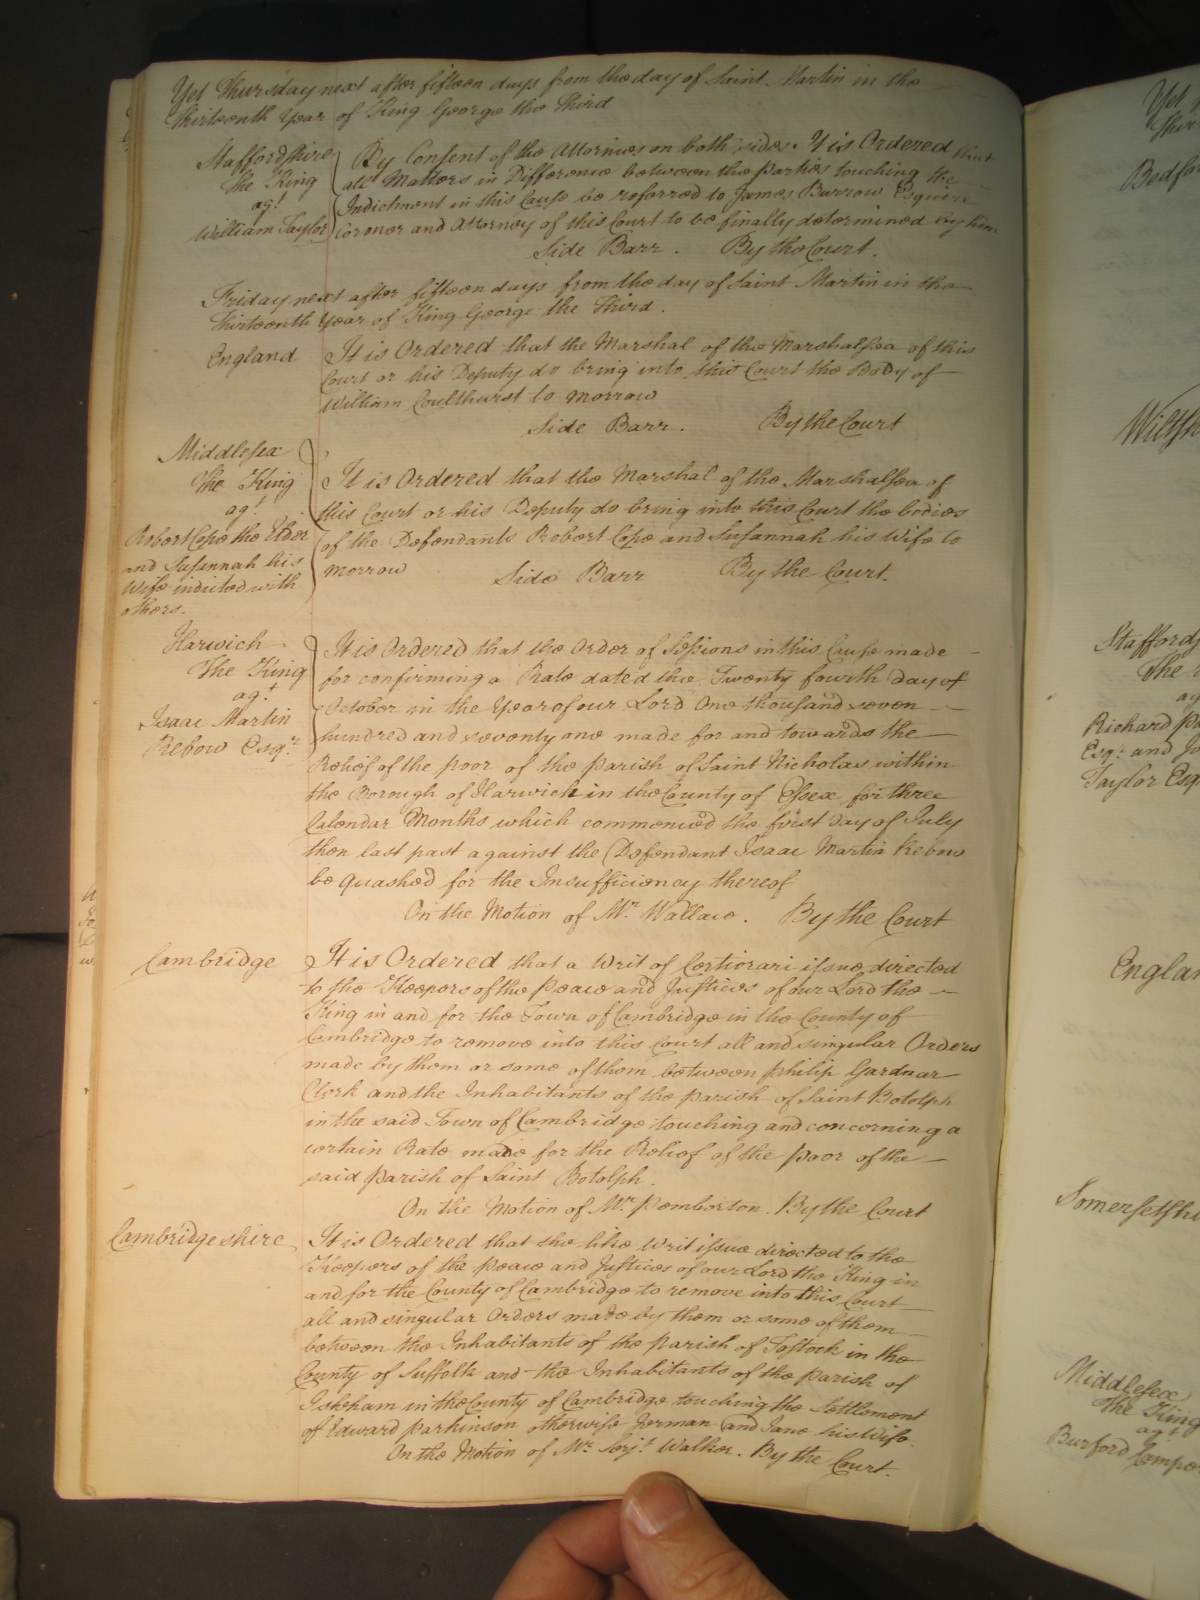 Yet Thursday next after fifteen days from the day of Saint Martin in the
thirteenth Year of King George the Third
Staffordshire
The King
agt
William Taylor
By Consent of the Attornies on both sides It is Ordered that
all Matters in Difference between the Parties touching the
Indictment in this Cause be referred to James Burrow Esquire
Coroner and Attorney of this Court to be finally determined by him
Side Barr. By the Court.
Friday next after fifteen days from the day of Saint Martin in the
thirteenth Year of King George the Third.
England
It is Ordered that the Marshal of the Marshalsea of this
Court or his Deputy do bring into this Court the Body of
William Coulthurst to Morrow
Side Barr. By the Court
Middlesex
The King
agt
Robert Cope the Elder
and Susannah his
Wife indicted with
others.
It is Ordered that the Marshal of the Marshalsea of
this Court or his Deputy do bring into this Court the bodies
of the Defendants Robert Cope and Susannah his Wife to
Morrow Side Barr By the Court.
Harwich
The King
agt
Isaac Martin
Rebow Esqr.
It is Ordered that the Order of Sessions in this Cause made
for confirming a Rate dated the Twenty fourth day of
October in the Year of our Lord One thousand seven
hundred and seventy one made for and towards the
Relief of the poor of the parish of Saint Nicholas within
the Borough of Harwich in the County of Essex for three
Calendar Months which commenced the first day of July
then last past against the Defendant Isaac Martin Rebow
be quashed for the Insufficiency thereof
On the Motion of Mr. Wallace. By the Court
Cambridge
It is Ordered that a Writ of Certiorari issue directed
to the Keepers of the Peace and Justices of our Lord the
King in and for the Town of Cambridge in the County of
Cambridge to remove into this Court all and singular Orders
made by them or some of them between Philip Gardnar
Clerk and the Inhabitants of the parish of Saint Botolph
in the said Town of Cambridge touching and concerning a
certain Rate made for the Relief of the poor of the
said parish of Saint Botolph.
On the Motion of Mr. Pemberton. By the Court
Cambridgeshire
It is Ordered that the like Writ issue directed to the
Keepers of the peace and Justices of our Lord the King in
and for the County of Cambridge to remove into this Court
all and singular Orders made by them or some of them
between the Inhabitants of the parish of Tostock in the
County of Suffolk and the Inhabitants of the parish of
Isleham in the County of Cambridge touching the Settlement
of Edward Parkinson otherwise Jerman and Jane his Wife.
On the Motion of Mr. Serjt. Walker. By the Court.
Yet
Bedfor
Wiltsh
Staffords
The
ag
Richard
Esqr. and Jo
Taylor Esq
Englan
Somersetshi
Middlesex
The King
agt
Burford Campe